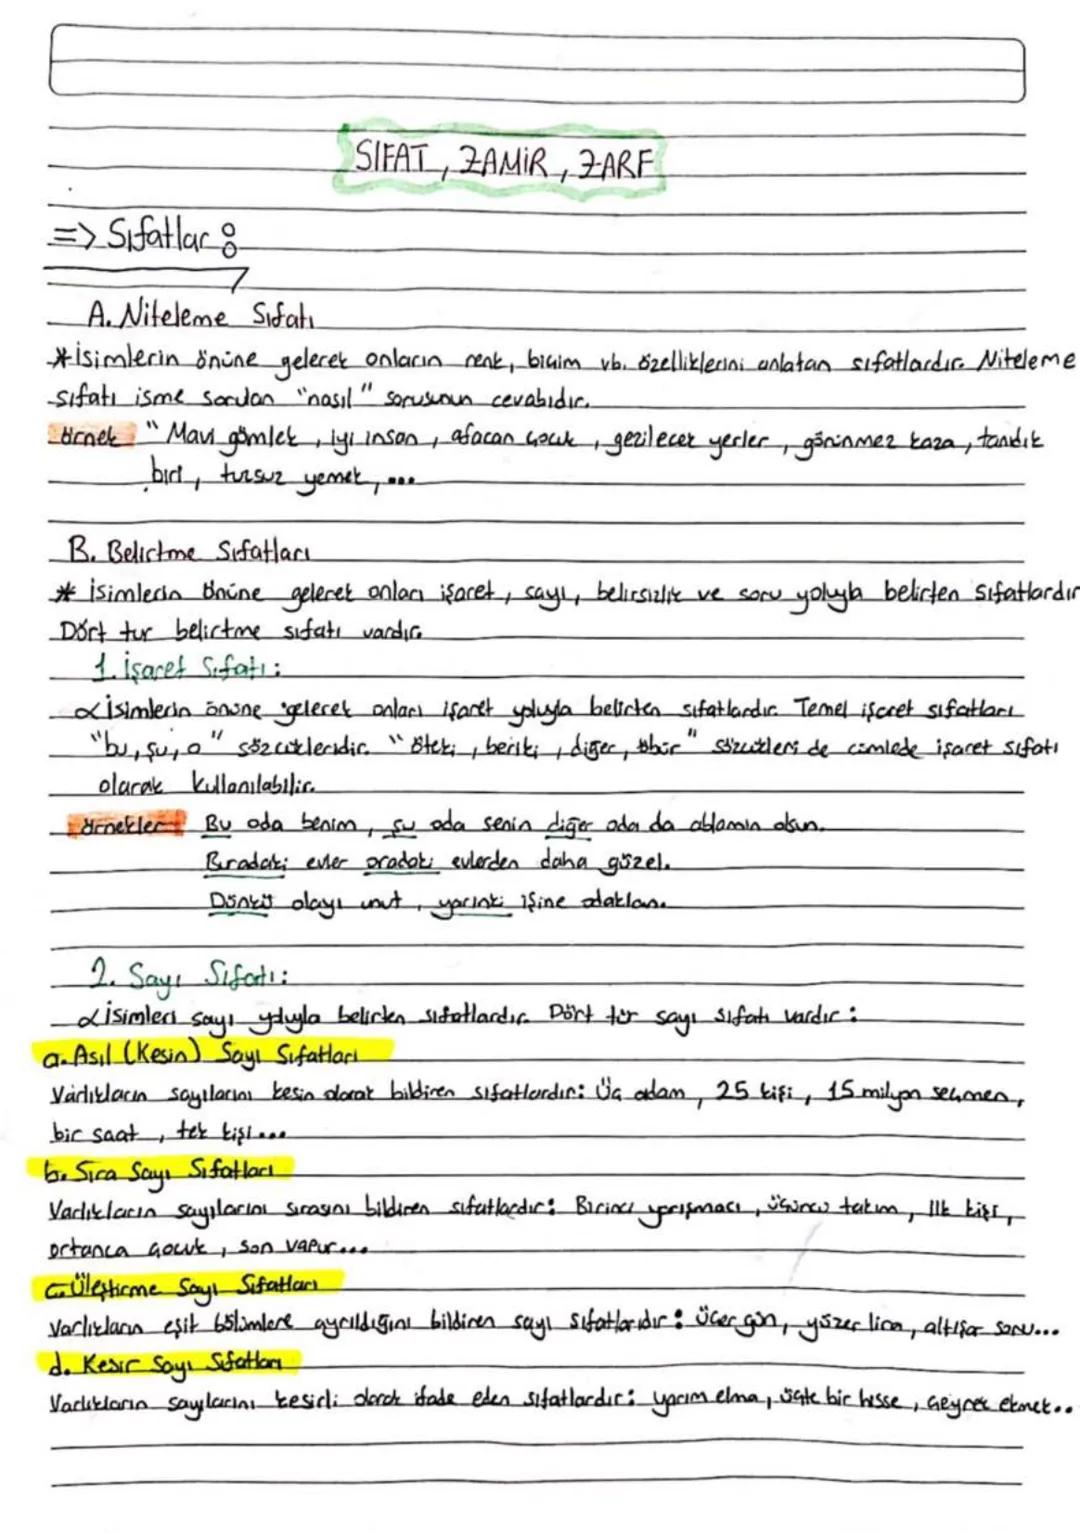 SIFAT, ZAMİR, ZARF
=> Sıfatlar:
A. Niteleme Sıfatı
* İsimlerin önüne gelerek onların renk, biçim vb. özelliklerini anlatan sıfatlardır. Niteleme
sıfatı isme sorulan "nasıl" sorusunun cevabıdır.
Örnek " Mavi gömlek, iyi insan, afacan çocuk, gezilecek yerler, görünmez kaza, tanıdık
biri, tuzsuz yemek, ...
B. Belirtme Sıfatları
* İsimlerin önüne gelerek onları işaret, sayı, belirsizlik ve soru yoluyla belirten sıfatlardır
Dört tür belirtme sıfatı vardır.
1. İşaret Sıfatı:
α İsimlerin önüne gelerek onları işaret yoluyla belirten sıfatlardır. Temel işaret sıfatları
"bu, şu, o" sözcükleridir. "Öteki, beriki, diğer, öbür" sözcükleri de cümlede işaret sıfatı
olarak kullanılabilir.
Örnekler Bu oda benim, şu oda senin diğer oda da ablamın olsun.
Buradaki evler oradaki evlerden daha güzel.
Dünkü olayı unut, yarınki işine odaklan.
2. Sayı Sıfatı:
α İsimleri sayı yoluyla belirten sıfatlardır. Dört tür sayı sıfatı vardır:
a. Asıl (Kesin) Sayı Sıfatları
Varlıkların sayılarını kesin olarak bildiren sıfatlardır: Üç adam, 25 kişi, 15 milyon seçmen,
bir saat, tek kişi...
b. Sıra Sayı Sıfatları
Varlıkların sayılarını sırasını bildiren sıfatlardır: Birinci yarışmacı, üçüncü takım, İlk kişi,
ortanca çocuk, son vapur...
c. Üleştirme Sayı Sıfatları
Varlıkların eşit bölümlere ayrıldığını bildiren sayı sıfatlarıdır: üçer gün, yüzer lira, altışar soru...
d. Kesir Sayı Sıfatları
Varlıkların sayılarını kesirli olarak ifade eden sıfatlardır: yarım elma, üçte bir hisse, çeyrek ekmek..